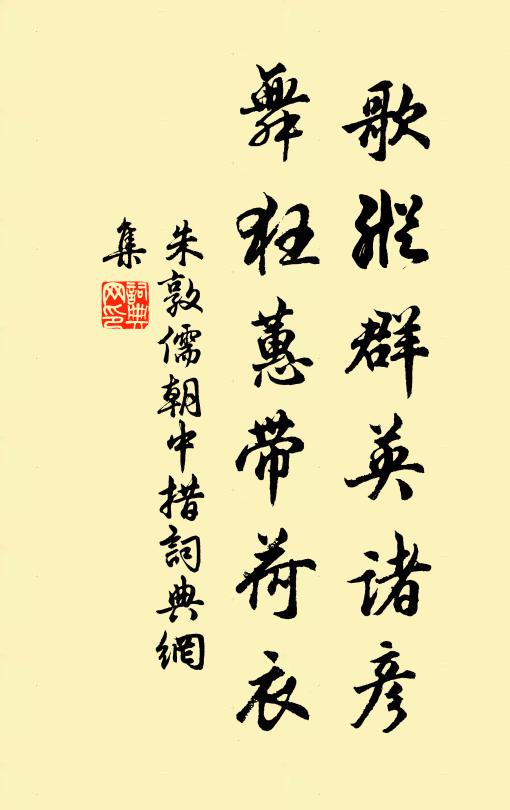 歌縱群英诸彦
舞狂蕙带荷衣
朱敦儒朝中措詞典網
集
詞典
网印